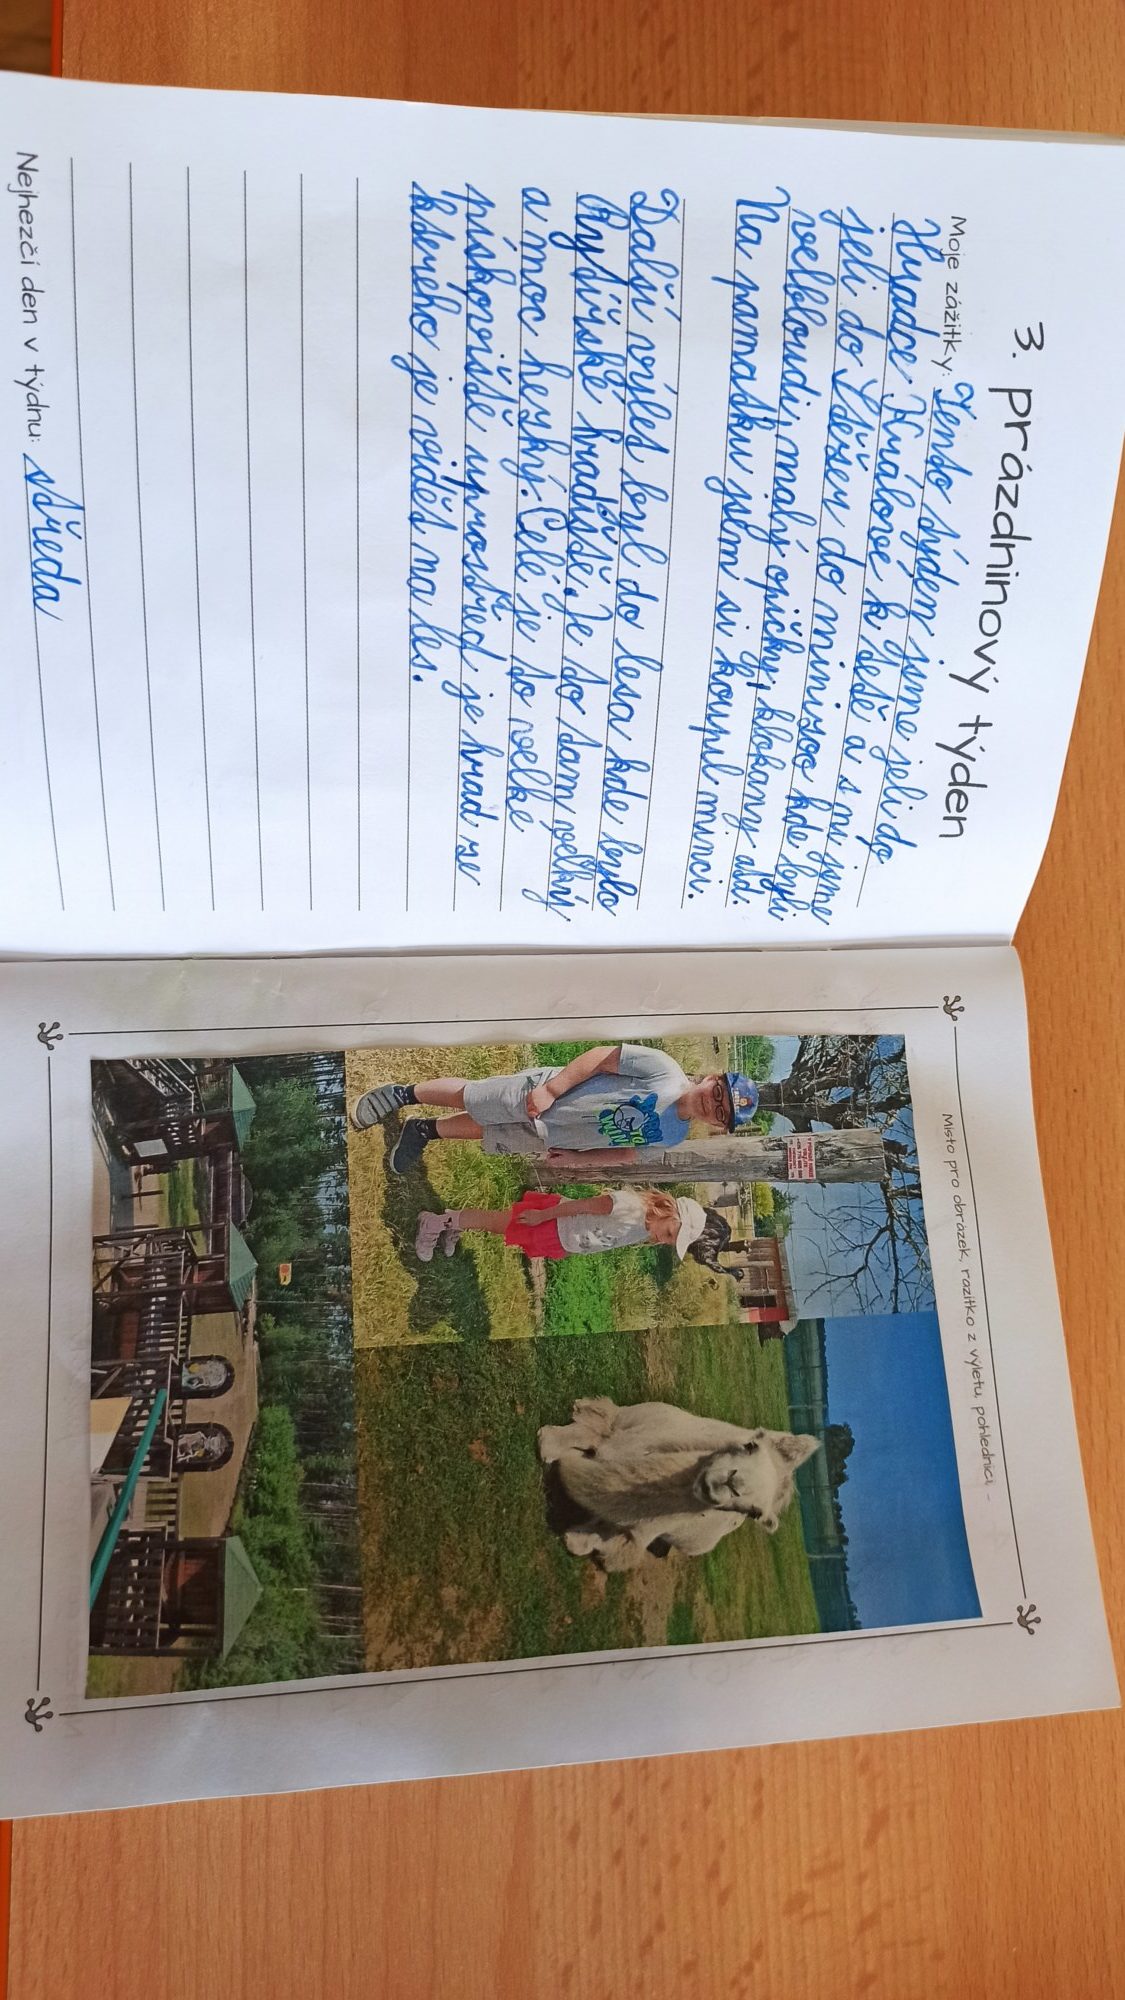 3. prázdninový týden
Moje zážitky: Tento týden jsme jeli do
Hradce Králove k tetě a s ní jsme
jeli do Stěžer do minizoo kde byli
velbloudi, malý opičky, klokany atd.
Na pamatku jsem si koupil minci.
Další výlet byl do lesa kde bylo
Rytířské hradiště. Je to tam velký
a moc hezký. Celé je to velke
pískoviště uprostřed je hrad ze
ktereho je vidět na les.
Nejhezčí den v týdnu: středa
Místo pro obrázek, razítko z výletu, pohlednici, -